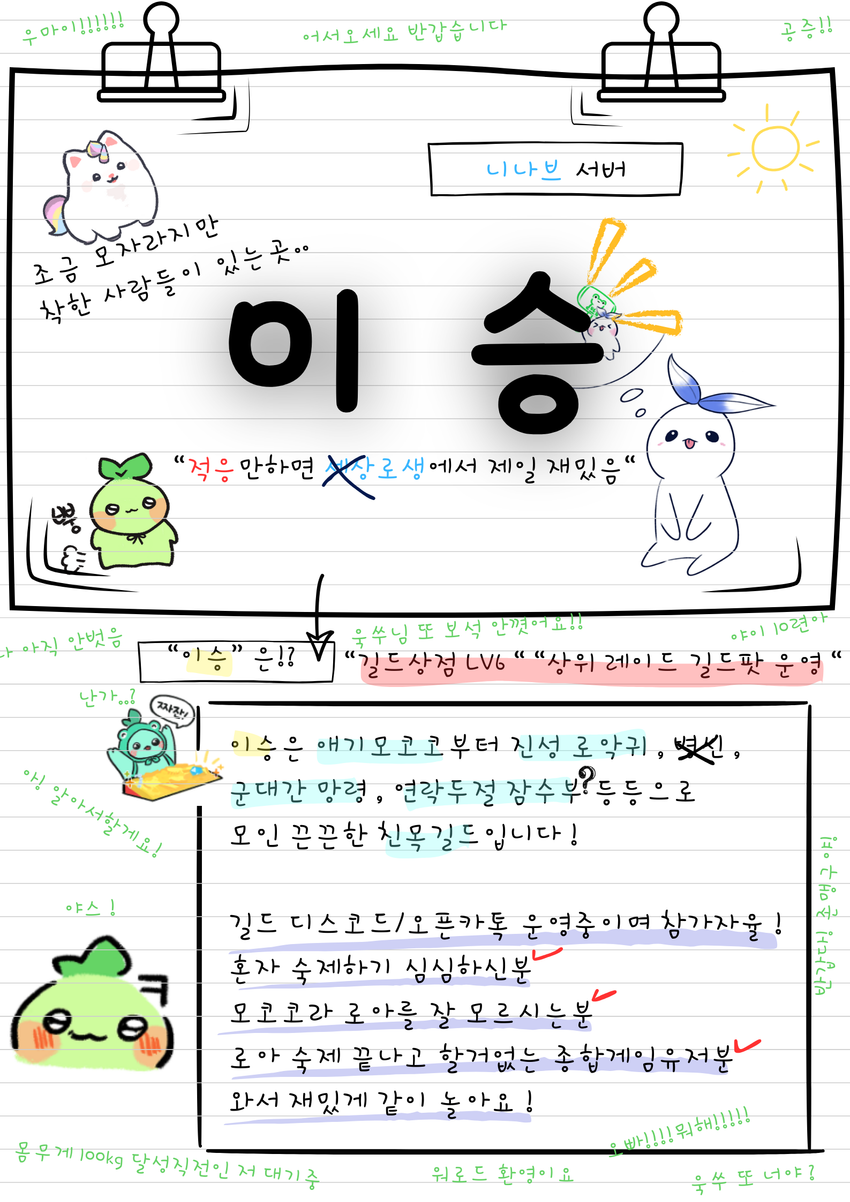 우마이!!!!!!
어서오세요 반갑습니다
공증!!
니나브 서버
조금 모자라지만
착한 사람들이 있는곳..
이 승
"적응만하면 세상로생에서 제일 재밌음"
나 아직 안벗음
욱쑤님 또 보석 안꼈어요!!
야이 10련아
"이승" 은!?
"길드상점 LV6 " "상위 레이드 길드팟 운영 "
난가..?
짜잔!
이승은 애기모코코부터 진성 로악귀, 병신,
군대간 망령, 연락두절 잠수부? 등등으로
모인 끈끈한 친목길드입니다!
아! 알아서할게요!
야스!
길드 디스코드/오픈카톡 운영중이며 참가자율!
혼자 숙제하기 심심하신분
모코코라 로아를 잘 모르시는분
로아 숙제 끝나고 할거없는 종합게임유저분
와서 재밌게 같이 놀아요!
ㅋ
오빠!!!!뭐해!!!!!
몸무게 100kg 달성직전인 저 대기중
워로드 환영이요
욱쑤 또 너야?